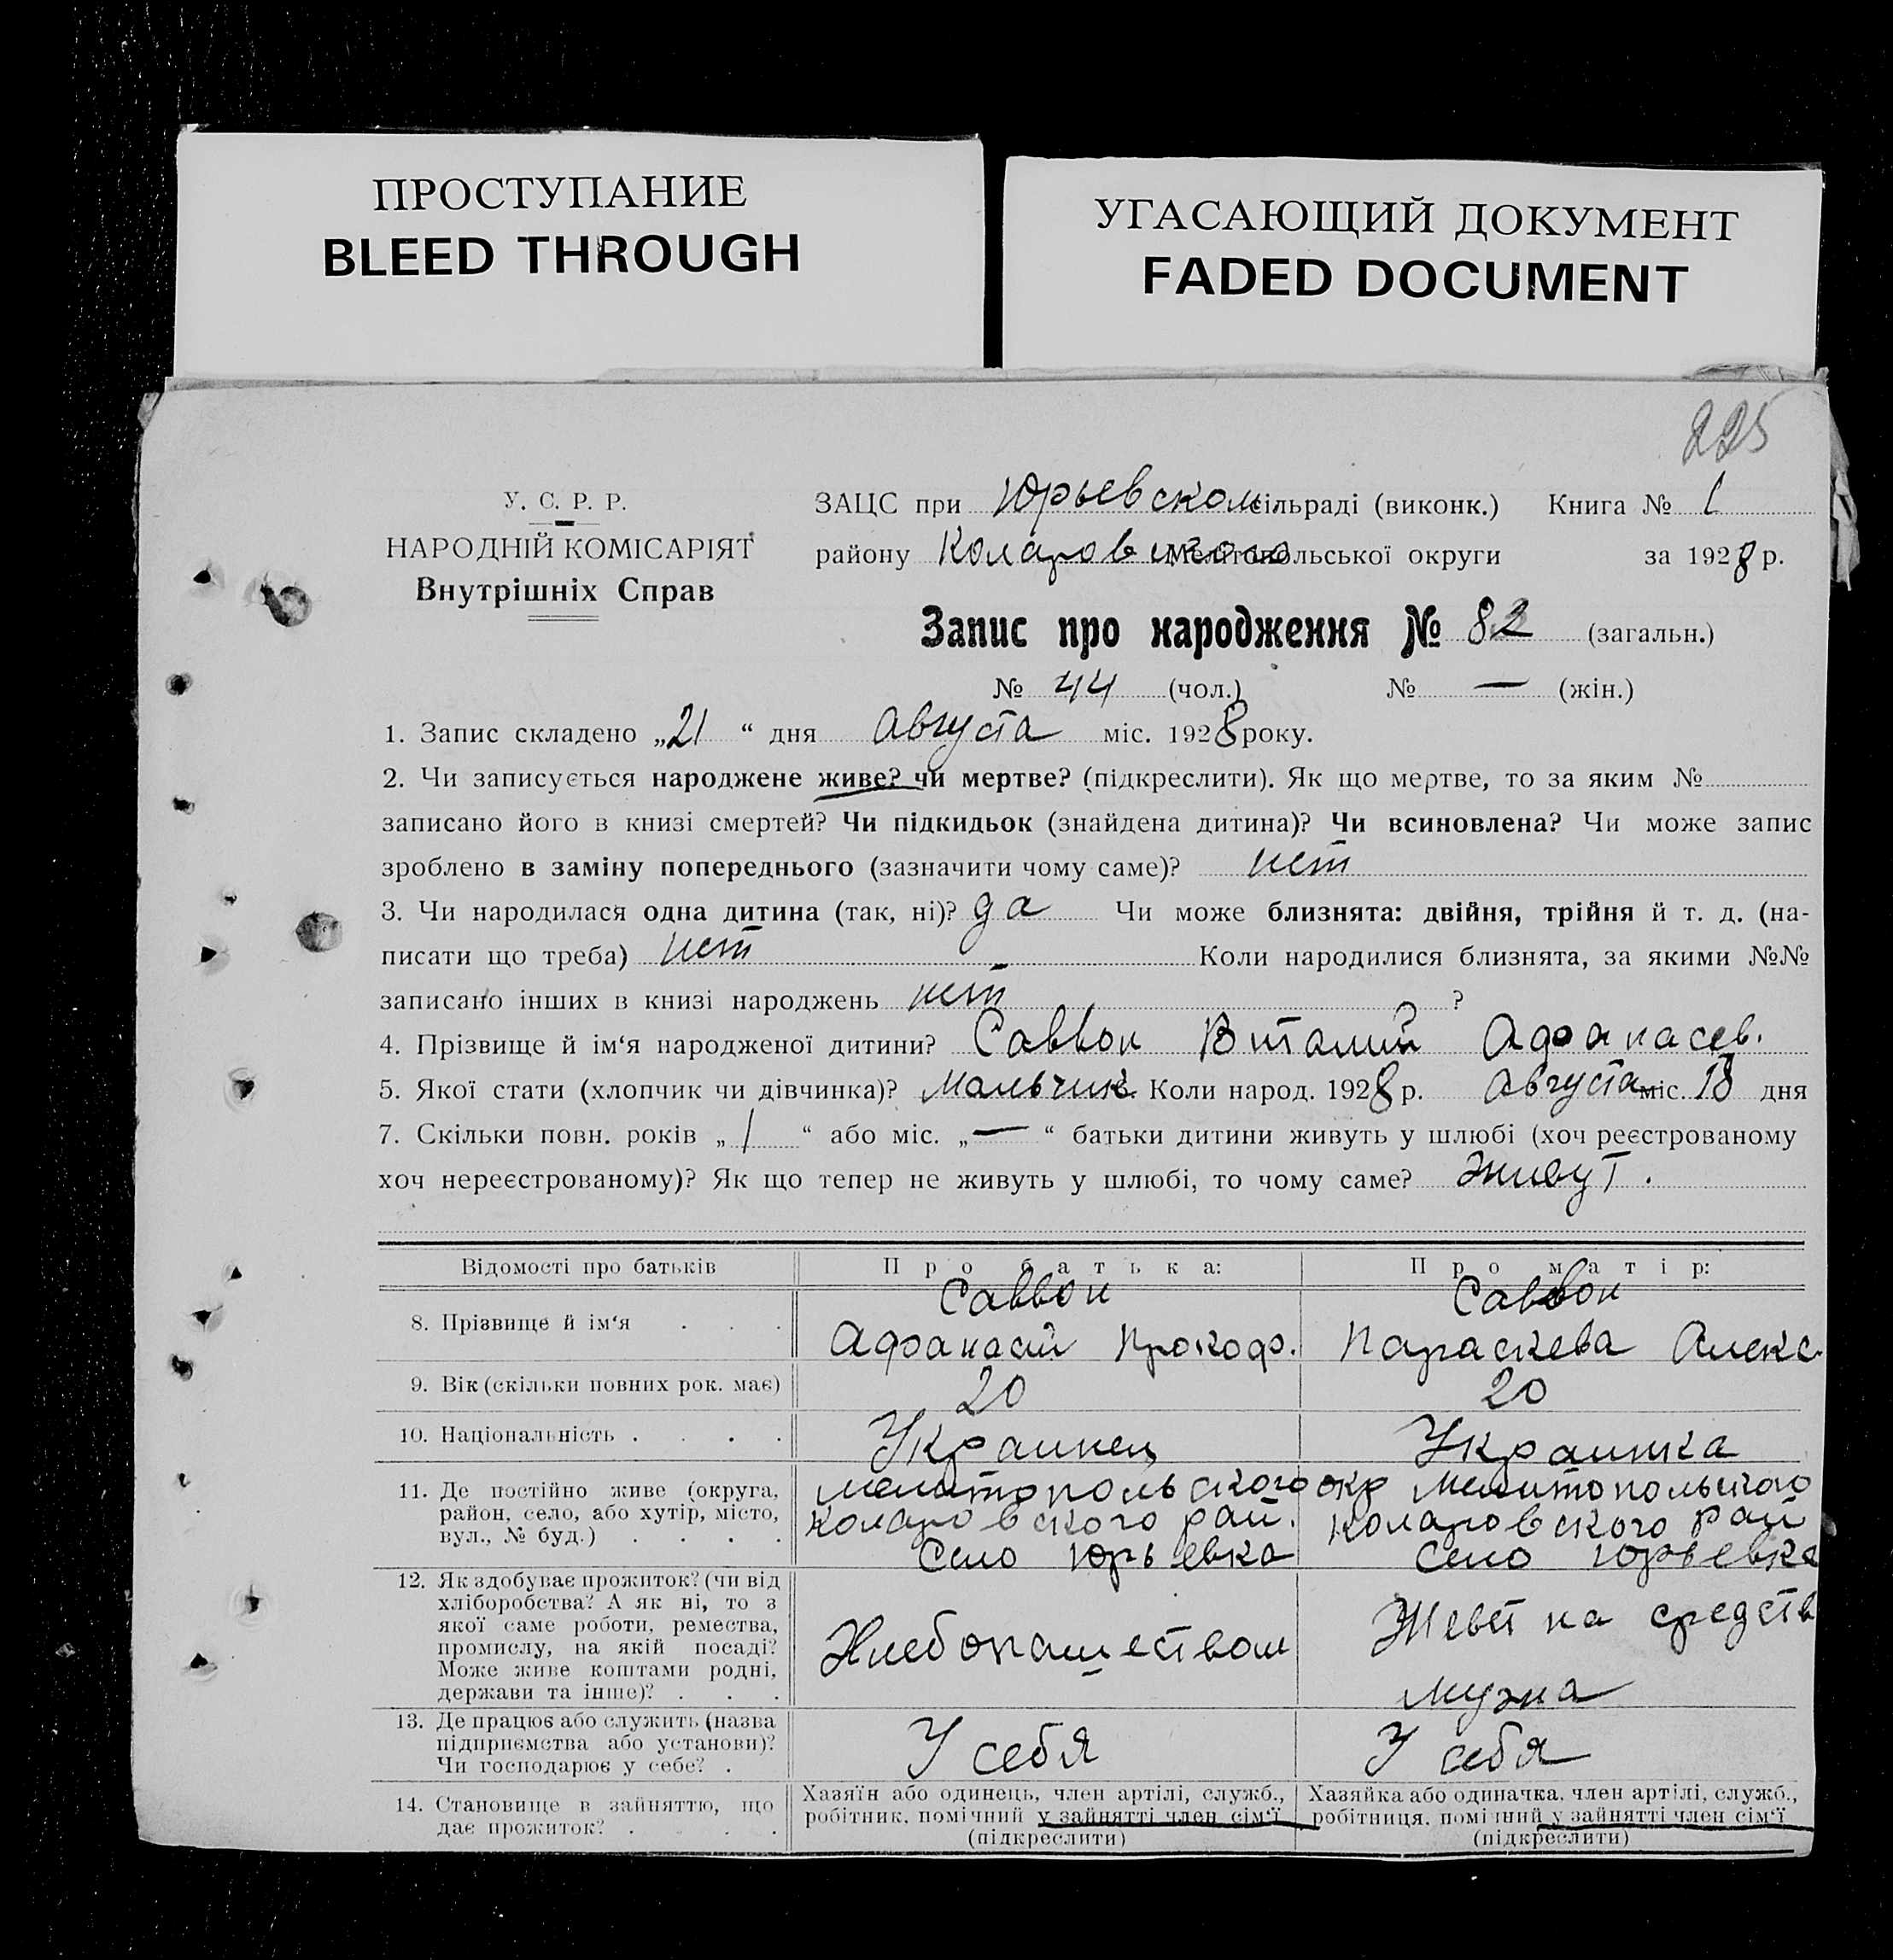 ПРОСТУПАНИЕ
BLEED THROUGH
УГАСАЮЩИЙ ДОКУМЕНТ
FADED DOCUMENT
225
У. С. Р. Р.
НАРОДНІЙ КОМІСАРІЯТ
Внутрішніх Справ
ЗАЦС при Юрьевском сільраді (виконк.) Книга № 1
району Коларовского Мелітопольської округи за 1928 р.
Запис про народження № 82 (загальн.)
№ 44 (чол.) № — (жін.)
1. Запис складено „21“ дня Августа міс. 1928 року.
2. Чи записується народжене живе? чи мертве? (підкреслити). Як що мертве, то за яким №
записано його в книзі смертей? Чи підкидьок (знайдена дитина)? Чи всиновлена? Чи може запис
зроблено в заміну попереднього (зазначити чому саме)? нет
3. Чи народилася одна дитина (так, ні)? да Чи може близнята: двійня, трійня й т. д. (на-
писати що треба) нет Коли народилися близнята, за якими №№
записано інших в книзі народжень нет ?
4. Прізвище й ім‘я народженої дитини? Саввон Виталий Афанасев.
5. Якої стати (хлопчик чи дівчинка)? Мальчик Коли народ. 1928 р. Августа міс. 18 дня
7. Скільки повн. років „1“ або міс. „—“ батьки дитини живуть у шлюбі (хоч реєстрованому
хоч нереєстрованому)? Як що тепер не живуть у шлюбі, то чому саме? Живут.
Відомості про батьків Про батька: Про матір:
8. Прізвище й ім‘я . . . Саввон Афанасий Прокоф. Саввон Параскева Алекс.
9. Вік (скільки повних рок. має) 20 20
10. Національність . . . . Украинец Украинка
11. Де постійно живе (округа, Мелитопольского окр Мелитопольского
район, село, або хутір, місто, Коларовского рай. Коларовского рай
вул., № буд.) . . . . Село Юрьевка Село Юрьевка
12. Як здобуває прожиток? (чи від
хліборобства? А як ні, то з
якої саме роботи, ремества, Живет на средств
промислу, на якій посаді? Хлебопашеством
Може живе коштами родні,
держави та інше)? . . . мужа
13. Де працює або служить (назва
підприємства або установи)? У себя У себя
Чи господарює у себе? .
14. Становище в зайняттю, що
дає прожиток? . . . .
Хазяїн або одинець, член артілі, служб.,
робітник, помічний у зайнятті член сім‘ї
(підкреслити)
Хазяйка або одиначка, член артілі, служб.,
робітниця, помічний у зайнятті член сім‘ї
(підкреслити)